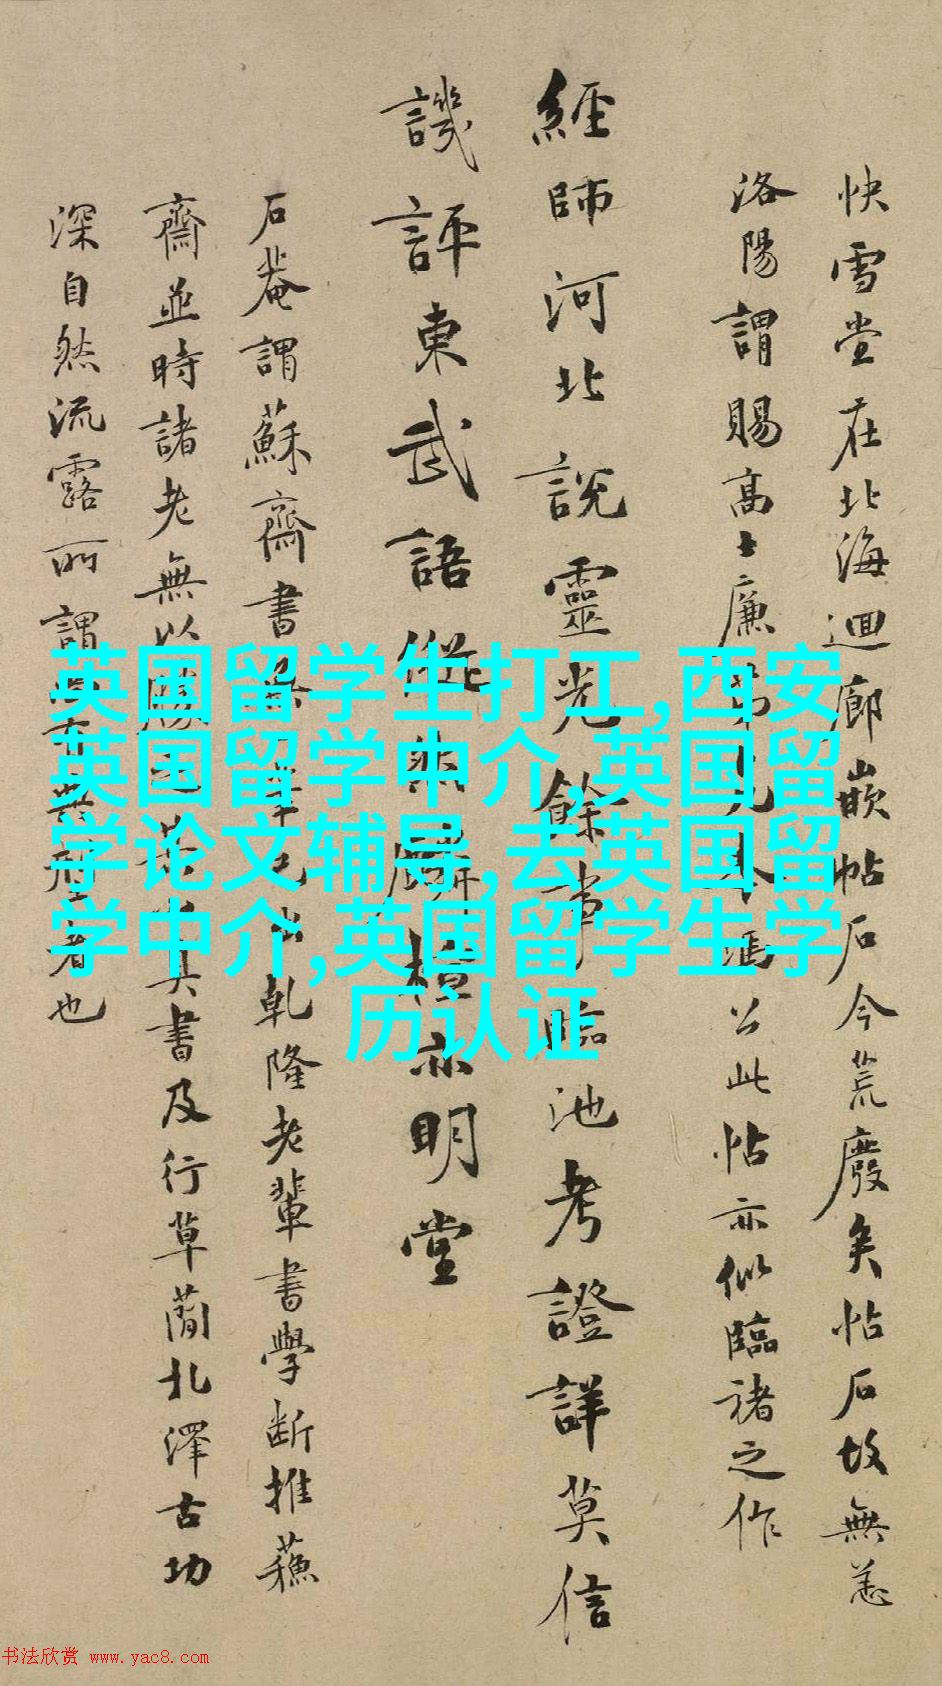 快雪堂在北海迴廊嵌帖石今荒廢矣帖石故無恙
洛陽謂賜高士廉
公此帖亦似臨褚之作
經師河北說靈光餘事臨池考證詳莫信
譏評東武語
亦明堂
石菴謂蘇齋書
乾隆老輩書學斷推蘇
齋並時諸老無以
真書及行草蘭北澤古功
深自然流露所謂
者也
英国留学生打工,西安
英国留学中介,英国留
学论文辅导,去英国留
学中介,英国留学生学
历认证
书法欣赏 www.yac8.com